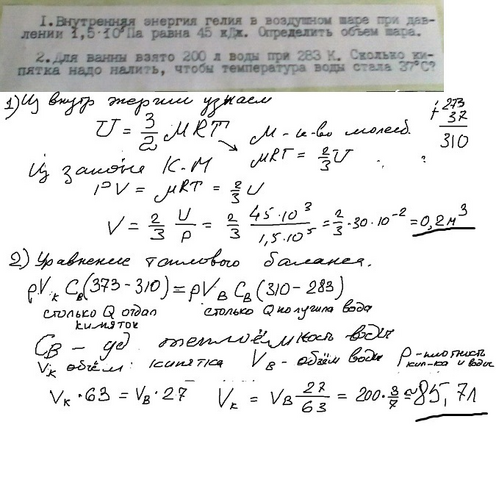 1. Внутренняя энергия гелия в воздушном шаре при дав-
лении 1,5·10⁵Па равна 45 кДж. Определить объем шара.
2. Для ванны взято 200 л воды при 283 К. Сколько ки-
пятка надо налить, чтобы температура воды стала 37°С?
1) Из внутр энергии узнаем
+ 273
37
310
U = 3/2 μRT
μ - к-во молей.
Из закона К.М
μRT = 2/3 U
PV = μRT = 2/3 U
V = 2/3 U/P = 2/3 45·10³/1,5·10⁵ = 2/3·30·10⁻² = 0,2м³
2) Уравнение теплового баланса.
ρVк Cв(373-310) = ρVв Cв(310-283)
столько Q отдал кипяток
столько Q получила вода
Cв - уд. теплоёмкость воды
Vк объём. кипятка Vв - объём воды ρ - плотность
кип-ка и воды
Vк·63 = Vв·27 Vк = Vв 27/63 = 200·3/7 ≈ 85,7л